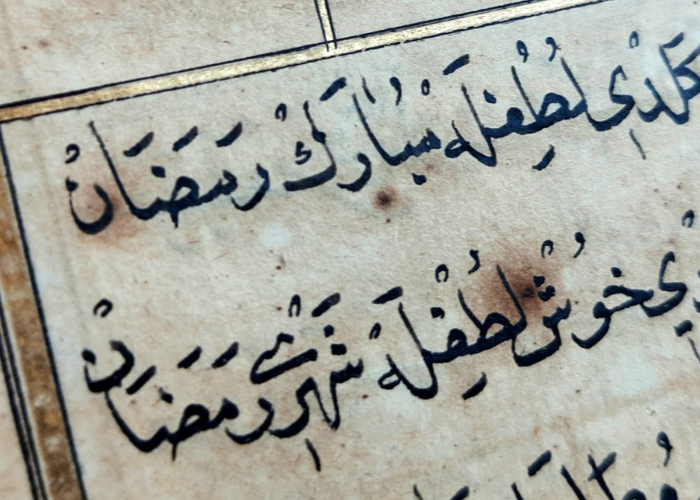 كلدي لطفله مبارك رمضان
خوش لطفله شهر رمضان